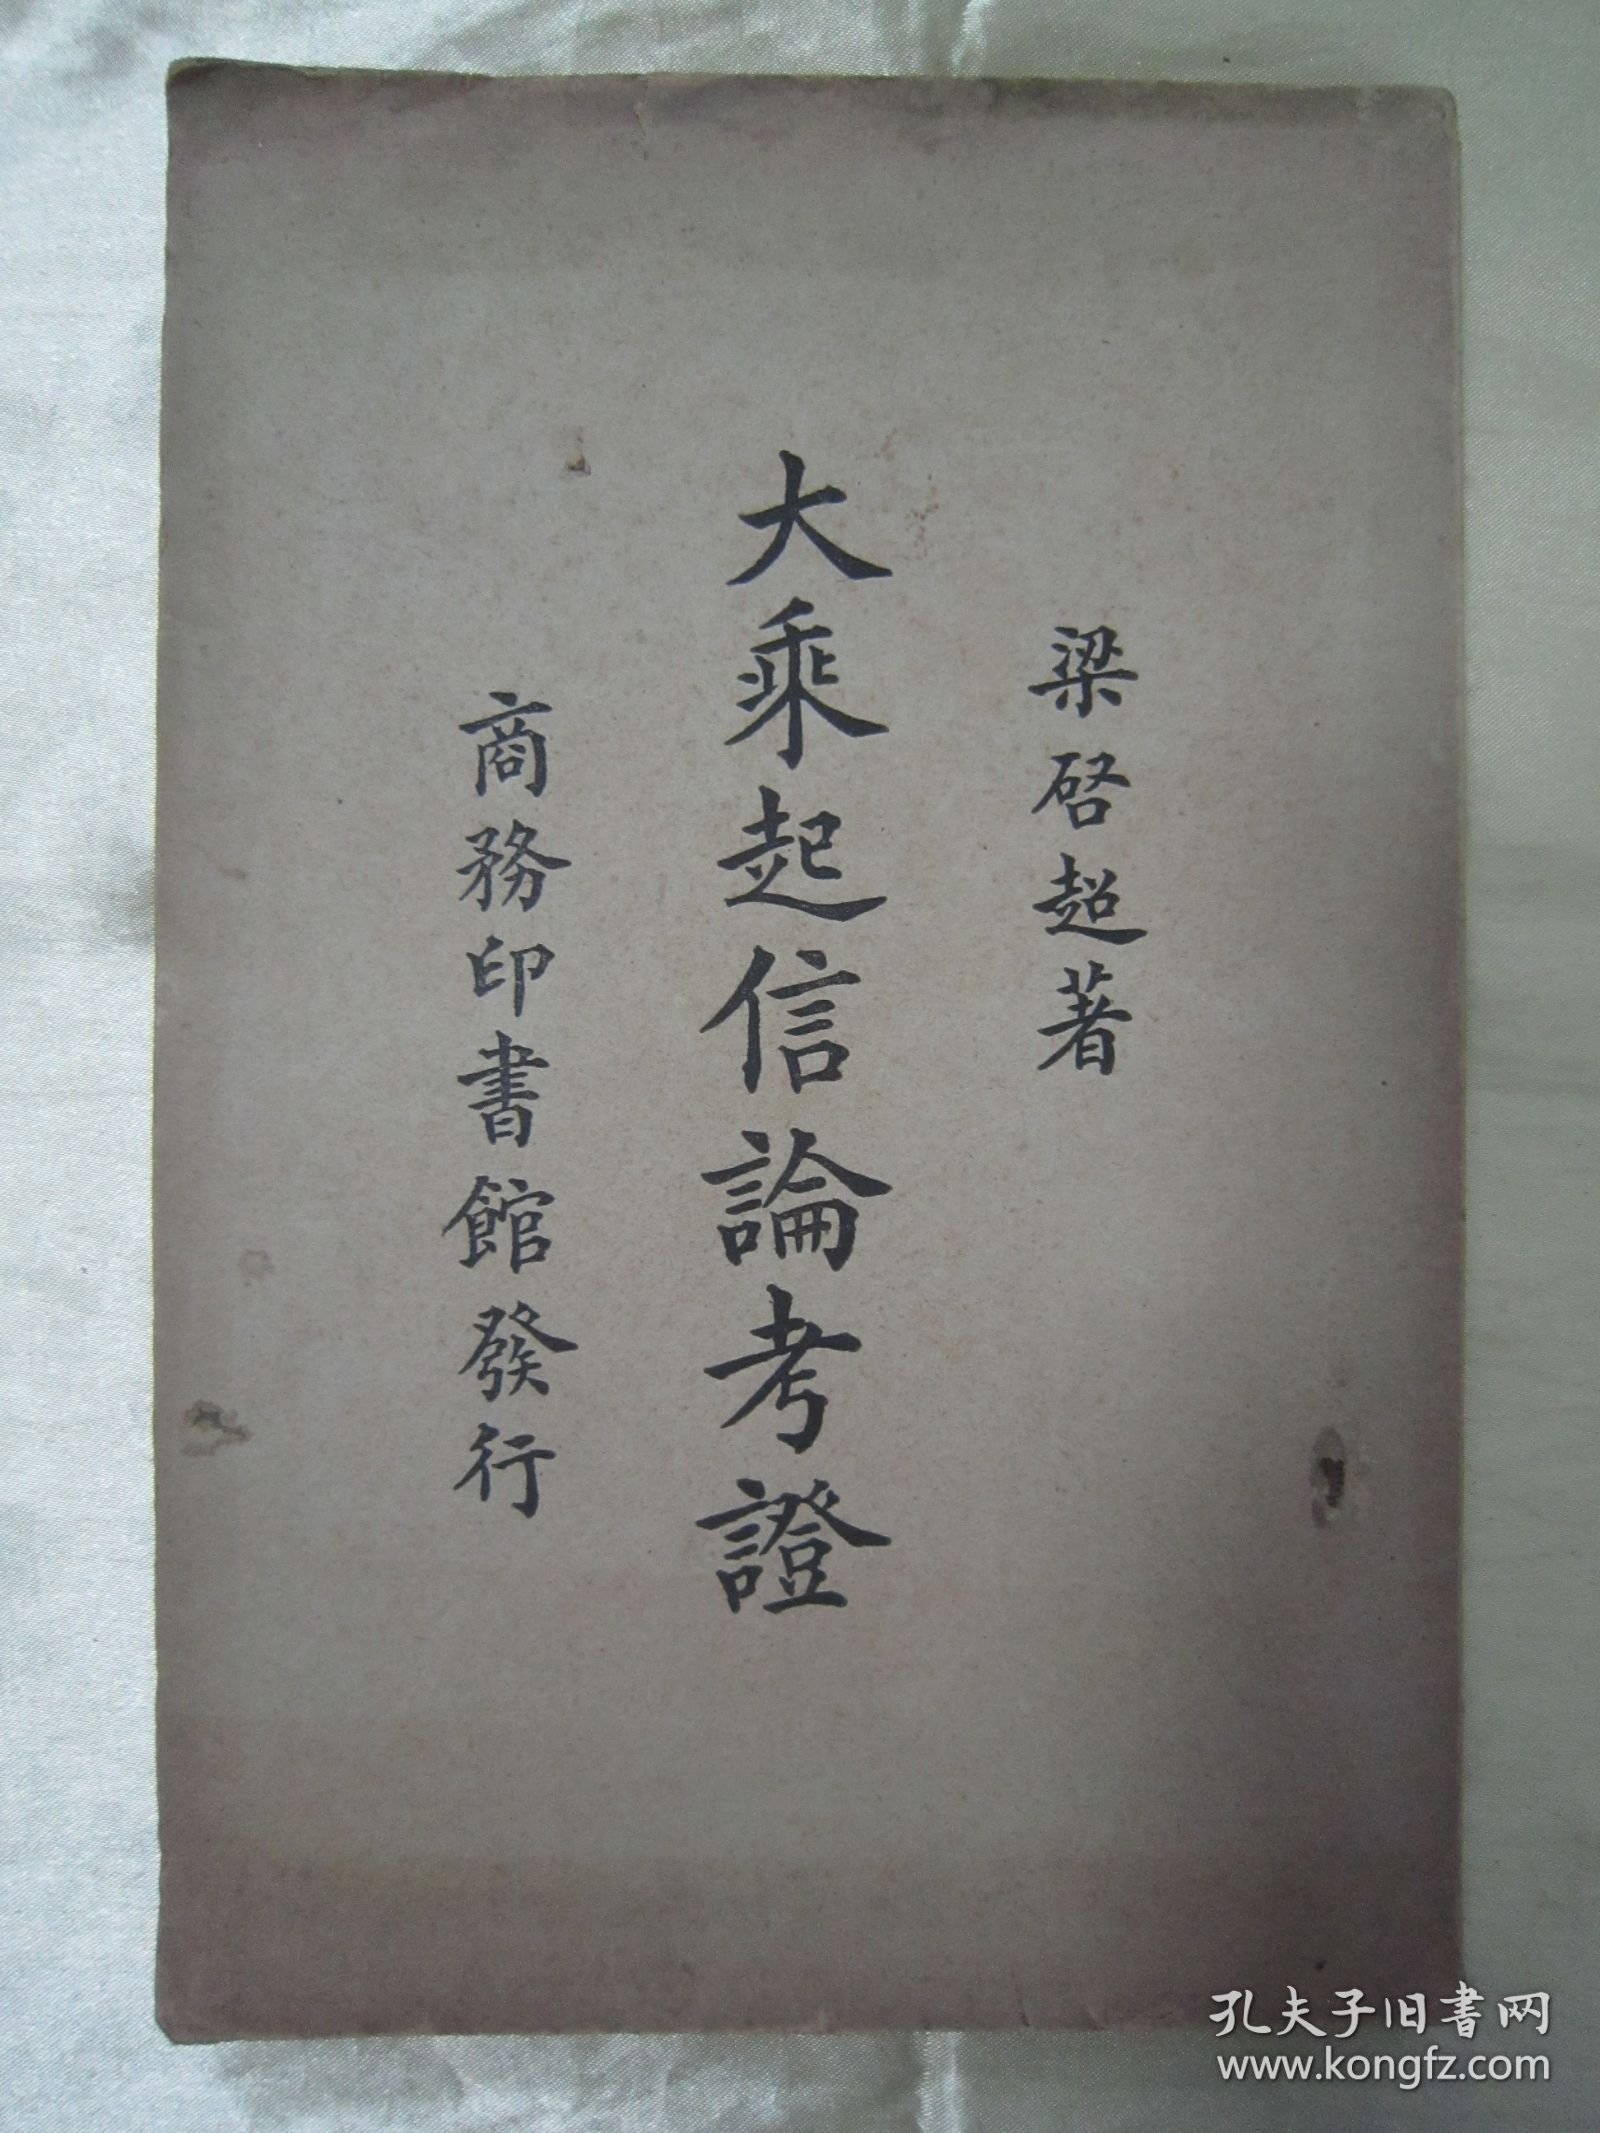 梁啓超著
大乘起信論考證
商務印書館發行
孔夫子旧书网
www.kongfz.com